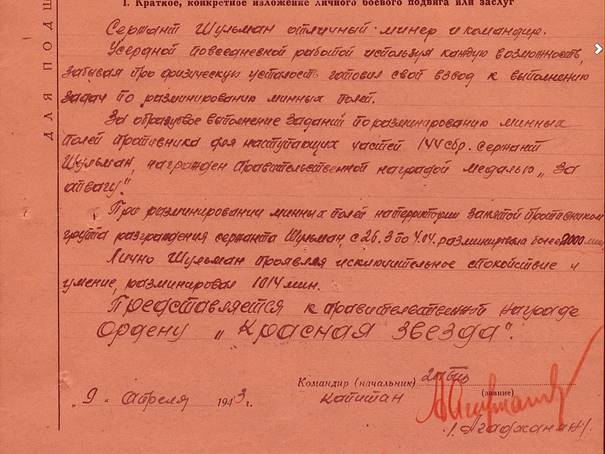 1. Краткое, конкретное изложение личного боевого подвига или заслуг
Сержант Шульман отличный минер и командир.
Усердной повседневной работой используя каждую возможность,
забывая про физическую усталость готовил свой взвод к выполнению
задач по разминированию минных полей.
За образцовое выполнение заданий по разминированию минных
полей противника для наступающих частей 144 сбр. сержант
Шульман, награжден правительственной наградой медалью „За
отвагу".
При разминировании минных полей на территории занятой противником
группа разграждения сержанта Шульман, с 26.3 по 4.04. разминировала более 2000 мин.
Лично Шульман проявляя исключительное спокойствие и
умение, разминировал 1014 мин.
Представляется к правительственной награде
ордену „Красная звезда".
Командир (начальник)
9. апреля 1943г. капитан (звание)
ДЛЯ ПОДШ